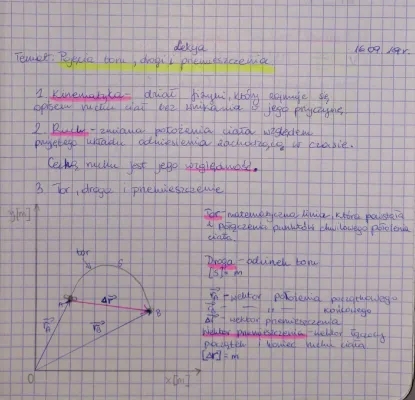 Lekcja
16.09.19r.
Temat: Pojęcia toru, drogi i przemieszczenia
1. Kinematyka - dział fizyki, który zajmuje się
opisem ruchu ciał bez wnikania w jego przyczynę.
2. Ruch - zmiana położenia ciała względem
przyjętego układu odniesienia zachodząca w czasie.
Cechą ruchu jest jego względność.
3. Tor, droga i przemieszczenie
y[m]
tor
S
A
Δr
B
r_A
r_B
0
x[m]
Tor - matematyczna linia, która powstaje
z połączenia punktów chwilowego położenia
ciała.
Droga - odcinek toru
[S] = m
r_A - wektor położenia początkowego
r_B - " " końcowego
Δr - wektor przemieszczenia
Wektor przemieszczenia - wektor łączący
początek i koniec ruchu ciała
[Δr] = m